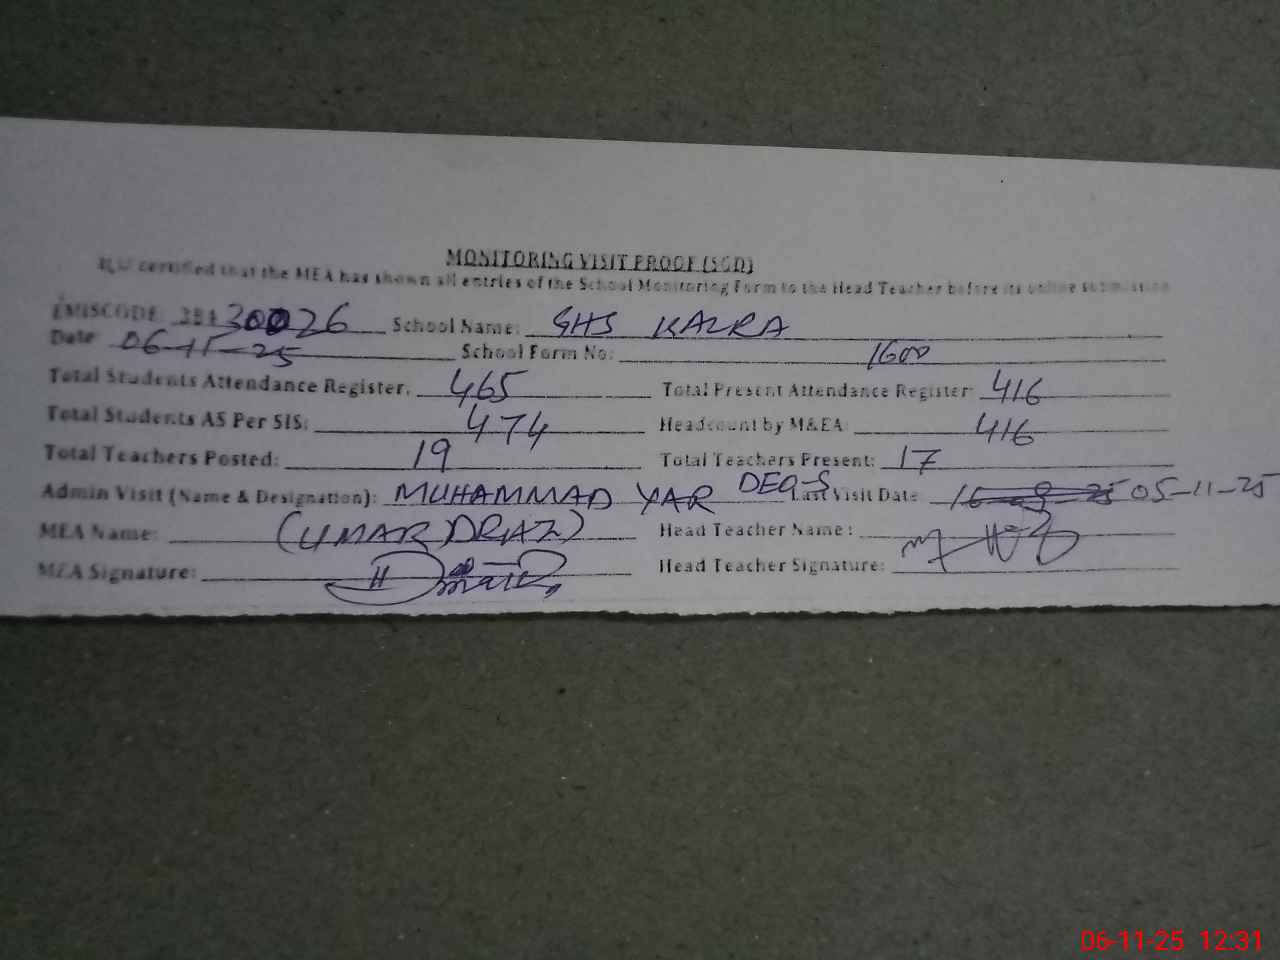 MONITORING VISIT PROOF (SGD)
It is certified that the MEA has shown all entries of the School Monitoring Form to the Head Teacher before its online submission
EMISCODE: 38430026 School Name: GHS KALRA
Date 06-11-25 School Form No: 1600
Total Students Attendance Register. 465 Total Present Attendance Register: 416
Total Students AS Per SIS: 474 Headcount by M&EA: 416
Total Teachers Posted: 19 Total Teachers Present: 17
Admin Visit (Name & Designation): MUHAMMAD YAR DEO-S Last Visit Date 05-11-25
MEA Name: (UMAR DRAZ) Head Teacher Name:
MEA Signature: Head Teacher Signature:
06-11-25 12:31